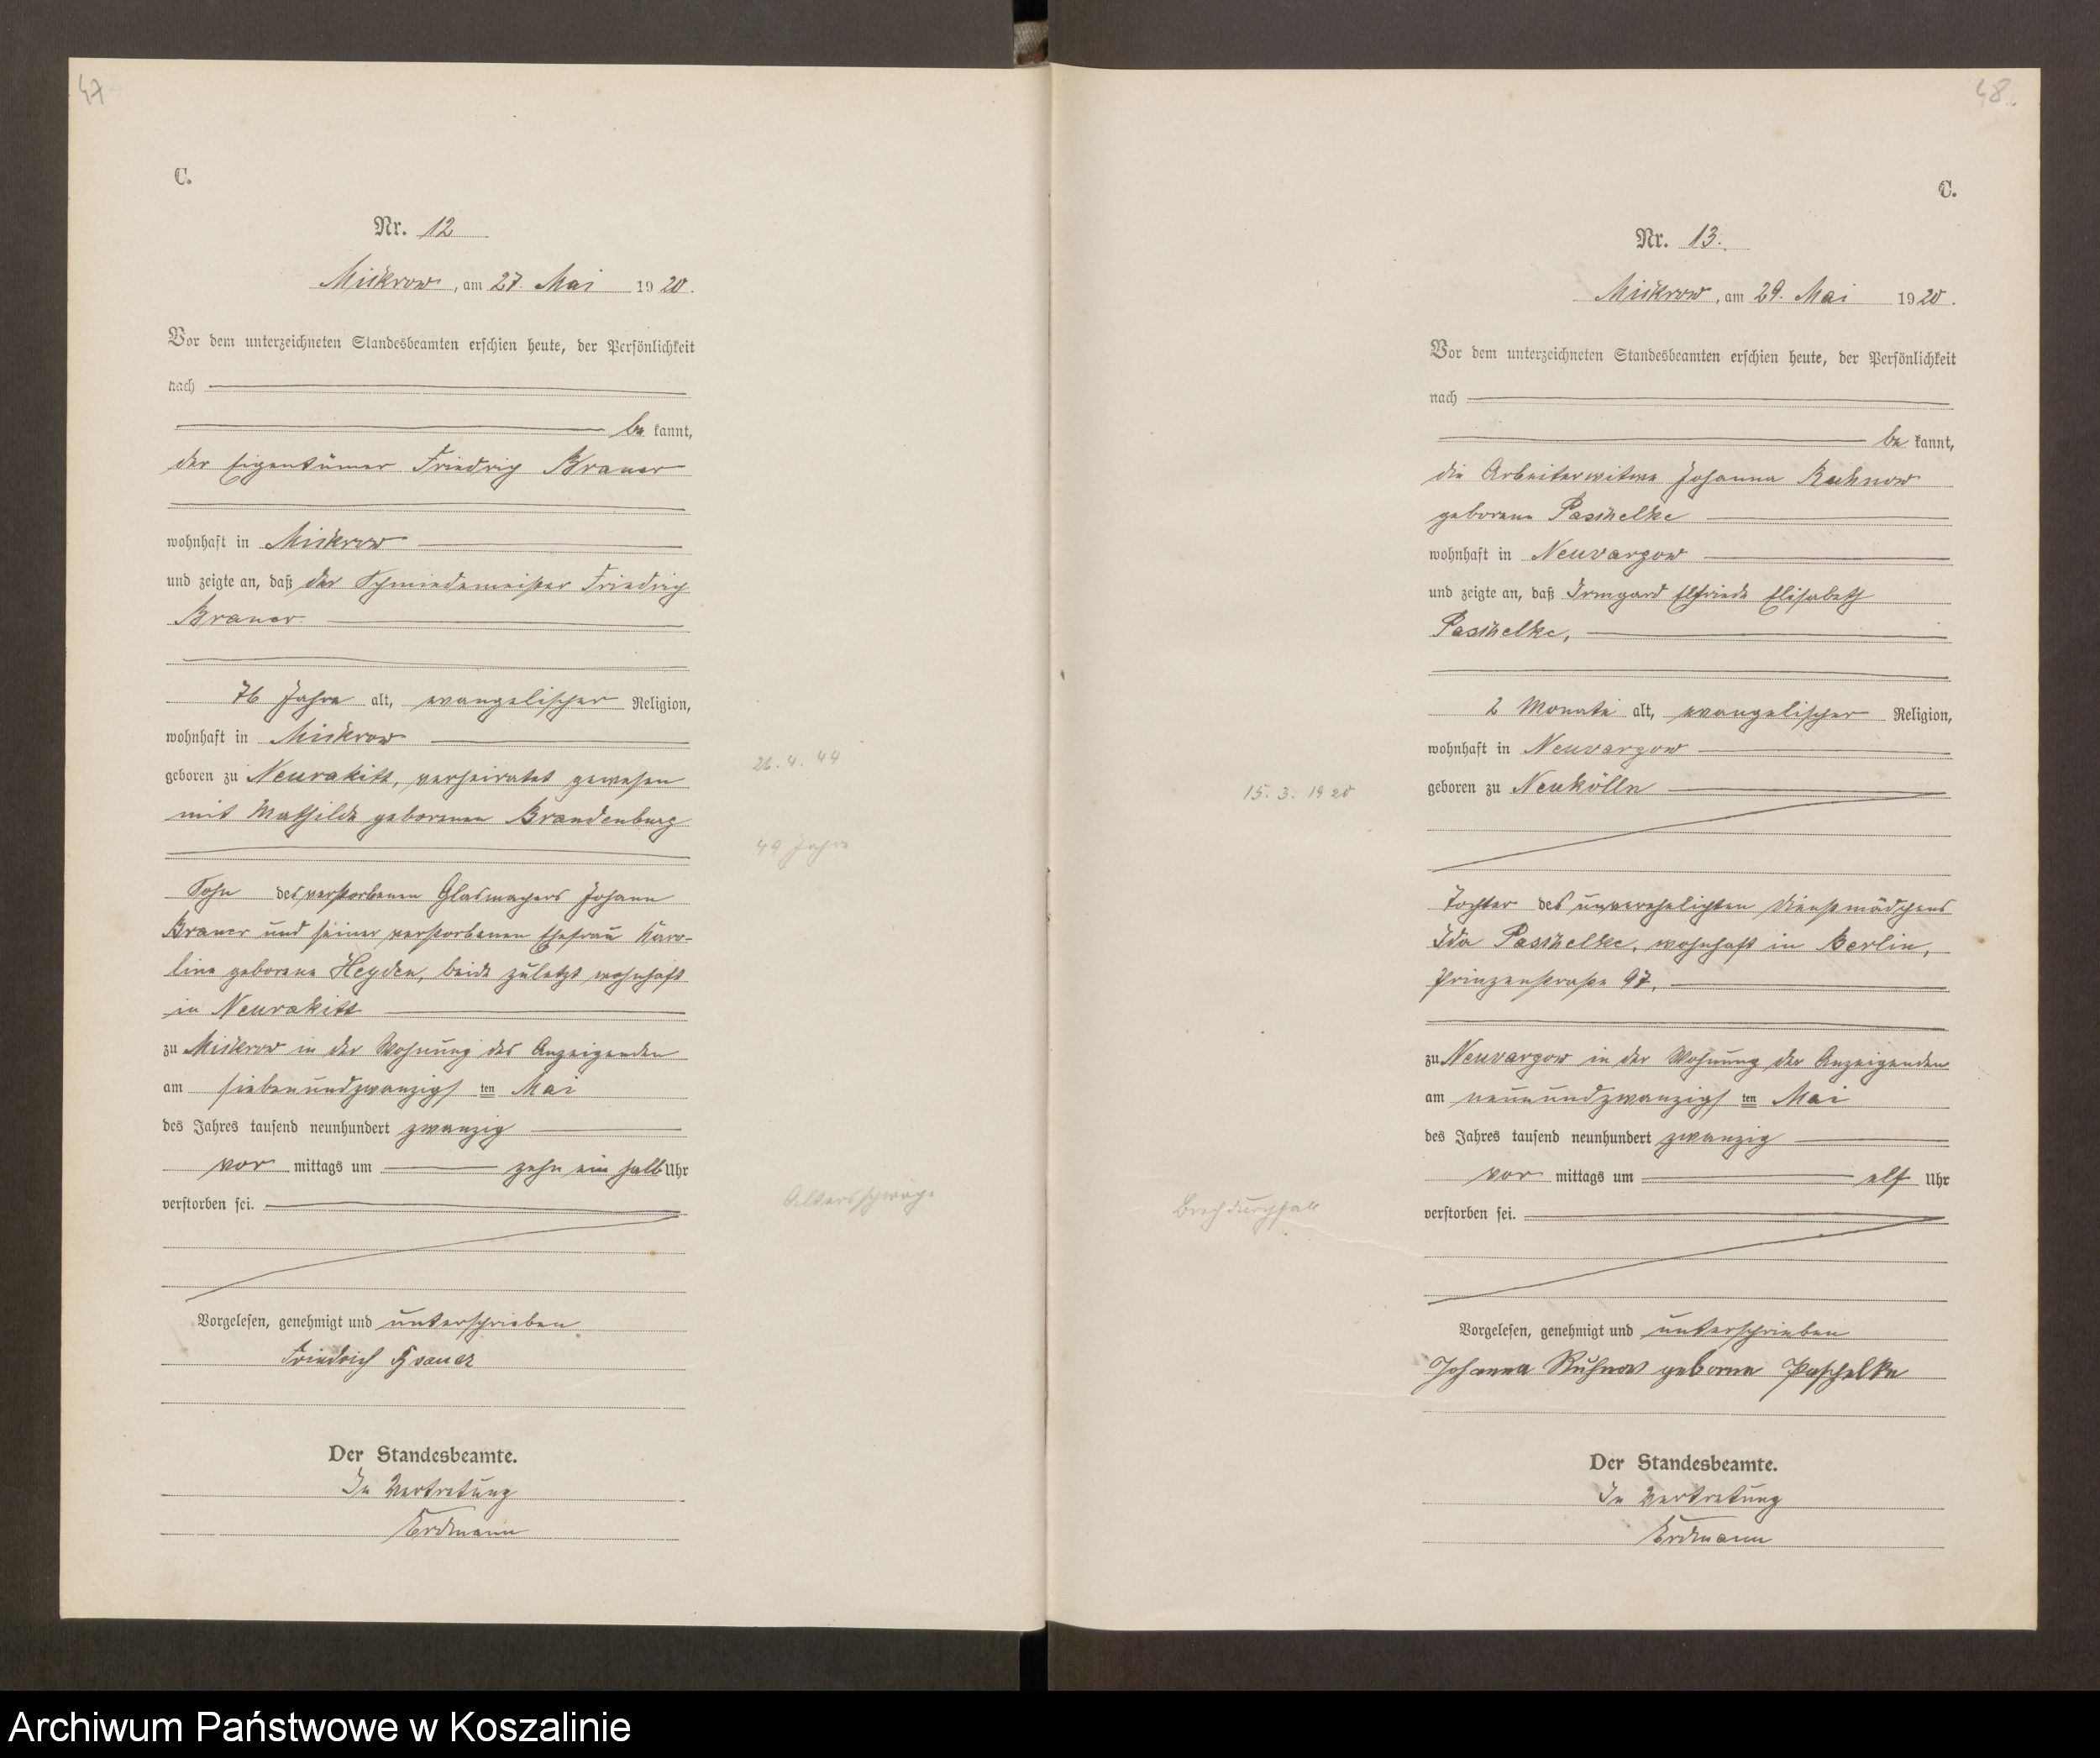 47
C.
Nr. 12
Mickrow, am 27. Mai 1920.
Vor dem unterzeichneten Standesbeamten erschien heute, der Persönlichkeit
nach
be kannt,
der Eigentümer Friedrich Kramer
wohnhaft in Mickrow
und zeigte an, daß der Schmiedemeister Friedrich
Kramer
76 Jahre alt, evangelischer Religion,
wohnhaft in Mickrow
geboren zu Neurakitt, verheiratet gewesen
26. 4. 44
mit Mathilde geborenen Brandenburg
49 Jahre
Sohn des verstorbenen Glasmachers Johann
Kramer und seiner verstorbenen Ehefrau Karo-
line geborene Heyden, beide zuletzt wohnhaft
in Neurakitt
zu Mickrow in der Wohnung des Anzeigenden
am siebenundzwanzigsten Mai
des Jahres tausend neunhundert zwanzig
vor mittags um zehn ein halb Uhr
Altersschwäche
verstorben sei.
Vorgelesen, genehmigt und unterschrieben
Friedrich Kramer
Der Standesbeamte.
In Vertretung
Erdmann
48.
C.
Nr. 13.
Mickrow, am 29. Mai 1920.
Vor dem unterzeichneten Standesbeamten erschien heute, der Persönlichkeit
nach
be kannt,
die Arbeiterwitwe Johanna Ruhnow
geborene Paschelke
wohnhaft in Neuvargow
und zeigte an, daß Irmgard Elfriede Elisabeth
Paschelke,
2 Monate alt, evangelischer Religion,
wohnhaft in Neuvargow
geboren zu Neukölln
15. 3. 1920
Tochter des unverehelichten Dienstmädchens
Ida Paschelke, wohnhaft in Berlin,
Prinzenstraße 97,
zu Neuvargow in der Wohnung der Anzeigenden
am neunundzwanzigsten Mai
des Jahres tausend neunhundert zwanzig
vor mittags um elf Uhr
Brechdurchfall
verstorben sei.
Vorgelesen, genehmigt und unterschrieben
Johanna Ruhnow geborene Paschelke
Der Standesbeamte.
In Vertretung
Erdmann
Archiwum Państwowe w Koszalinie